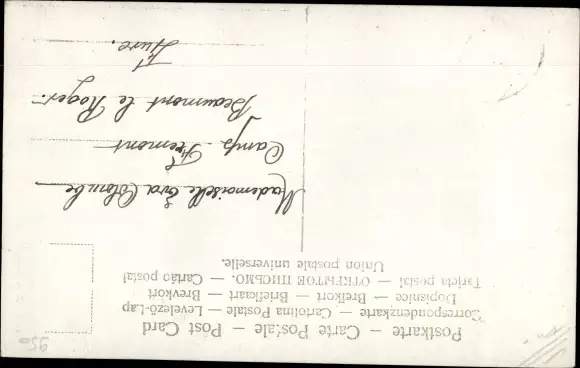 Postkarte — Carte Postale — Post Card
Correspondenzkarte — Cartolina Postale — Levelező-Lap
Dopisnice — Brefkort — Briefkaart — Brevkort
Tarjeta postal — ОТКРЫТОЕ ПИСЬМО. — Cartão postal
Union postale universelle.
Mademoiselle Eva Colombe
Camp Fremont
Beaumont le Roger.
Eure.